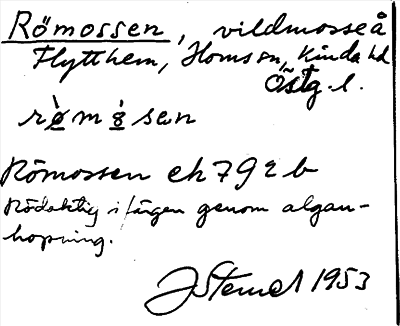 Römossen, vildmosse å
Flytthem, Homs sn, Kinda hd
Östg. l.
Römossen ek 7 9 2 b
Rödaktig i färgen genom algan-
hopning.
J Sterner 1953